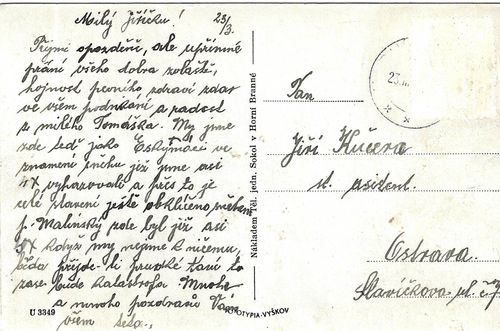 Milý Jiříčku! 25/3.
Přijmi opožděné, ale upřímné
přání všeho dobra zvláště,
hojnost pevného zdraví zdar
ve všem podnikání a radost
z milého Tomáška. My jsme
zde teď jako Eskymáci ve
znamení sněhu již jsme asi
vyhazovali a přes to je
celé stavení ještě obklíčeno sněhem
p. Malinský zde byl již asi
kdyz my nejsme k ničemu,
přijde-li prudké tání to
zase bude katastrofa. Mnoho
a mnoho pozdravů Vám
všem
U 3349
Nákladem Těl. jedn. Sokol v Horní Branné
FOTOTYPIA-VYŠKOV
23.III
Pan
Jiří Kučera
st. asistent.
Ostrava.
Slavíčkova ul. č.